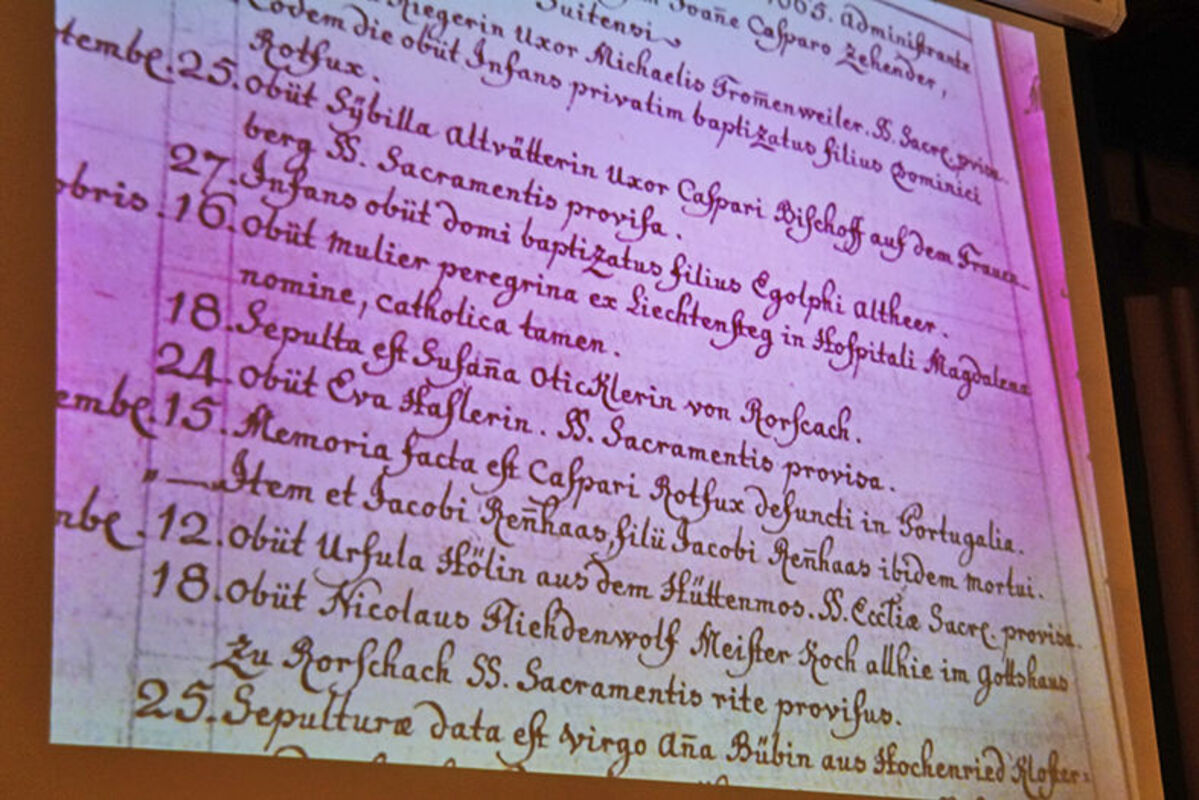 1665. administrante
Joañe Casparo Zehender,
Suitensi
Riegerin Uxor Michaelis From̄enweiler. SS. Sacre. provisa.
Eodem die obüt Infans privatim baptizatus filius Dominici
Rotfux.
tembe. 25. obüt Sÿbilla Altvätterin Uxor Caspari Bischoff auf dem Frauen
berg SS. Sacramentis provisa.
27. Infans obüt domi baptizatus filius Egolphi altheer.
obris. 16. obüt mulier peregrina ex Liechtensteg in Hospitali Magdalena
nomine, catholica tamen.
18. Sepulta est Susaña Oticklerin von Rorscach.
24. obüt Eva Haslerin. SS. Sacramentis provisa.
embe. 15. Memoria facta est Caspari Rotfux defuncti in Portugalia.
„ — Item et Jacobi Reñhaas, filü Jacobi Reñhaas ibidem mortui.
mbe. 12. obüt Ursula Hölin aus dem Hüttenmos. SS. Eccliæ Sacre. provisa.
18. obüt Nicolaus Fliehdenwolf Meister Koch allhie im Gottshaus
Zu Rorschach SS. Sacramentis rite provisus.
25. Sepulturæ data est virgo Aña Bübin aus Hochenried Kloster=